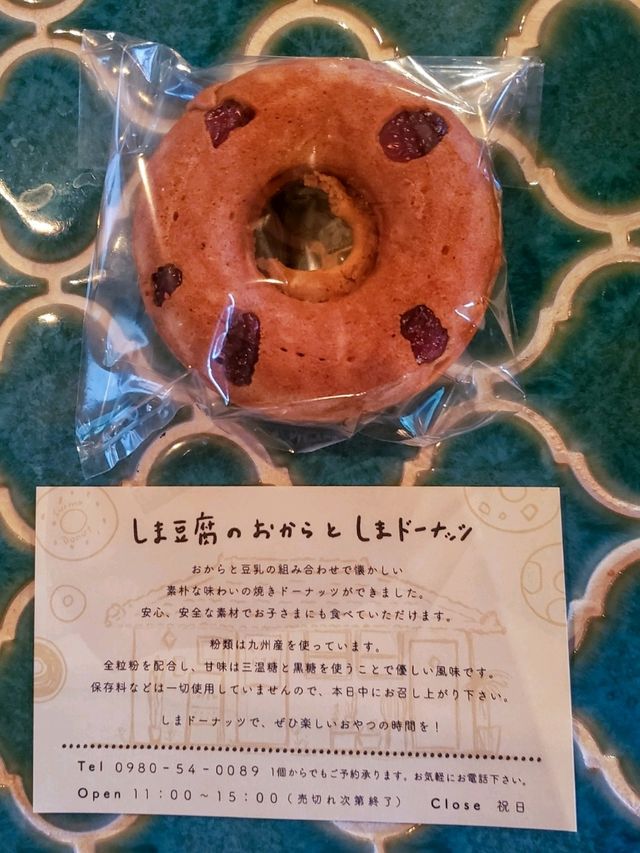 しま豆腐のおからと しまドーナッツ
おからと豆乳の組み合わせで懐かしい
素朴な味わいの焼きドーナッツができました。
安心、安全な素材でお子さまにも食べていただけます。
粉類は九州産を使っています。
全粒粉を配合し、甘味は三温糖と黒糖を使うことで優しい風味です。
保存料などは一切使用していませんので、本日中にお召し上がり下さい。
しまドーナッツで、ぜひ楽しいおやつの時間を！
Tel 0980-54-0089 1個からでもご予約承ります。お気軽にお電話下さい。
Open 11:00～15:00（売切れ次第終了） Close 祝日